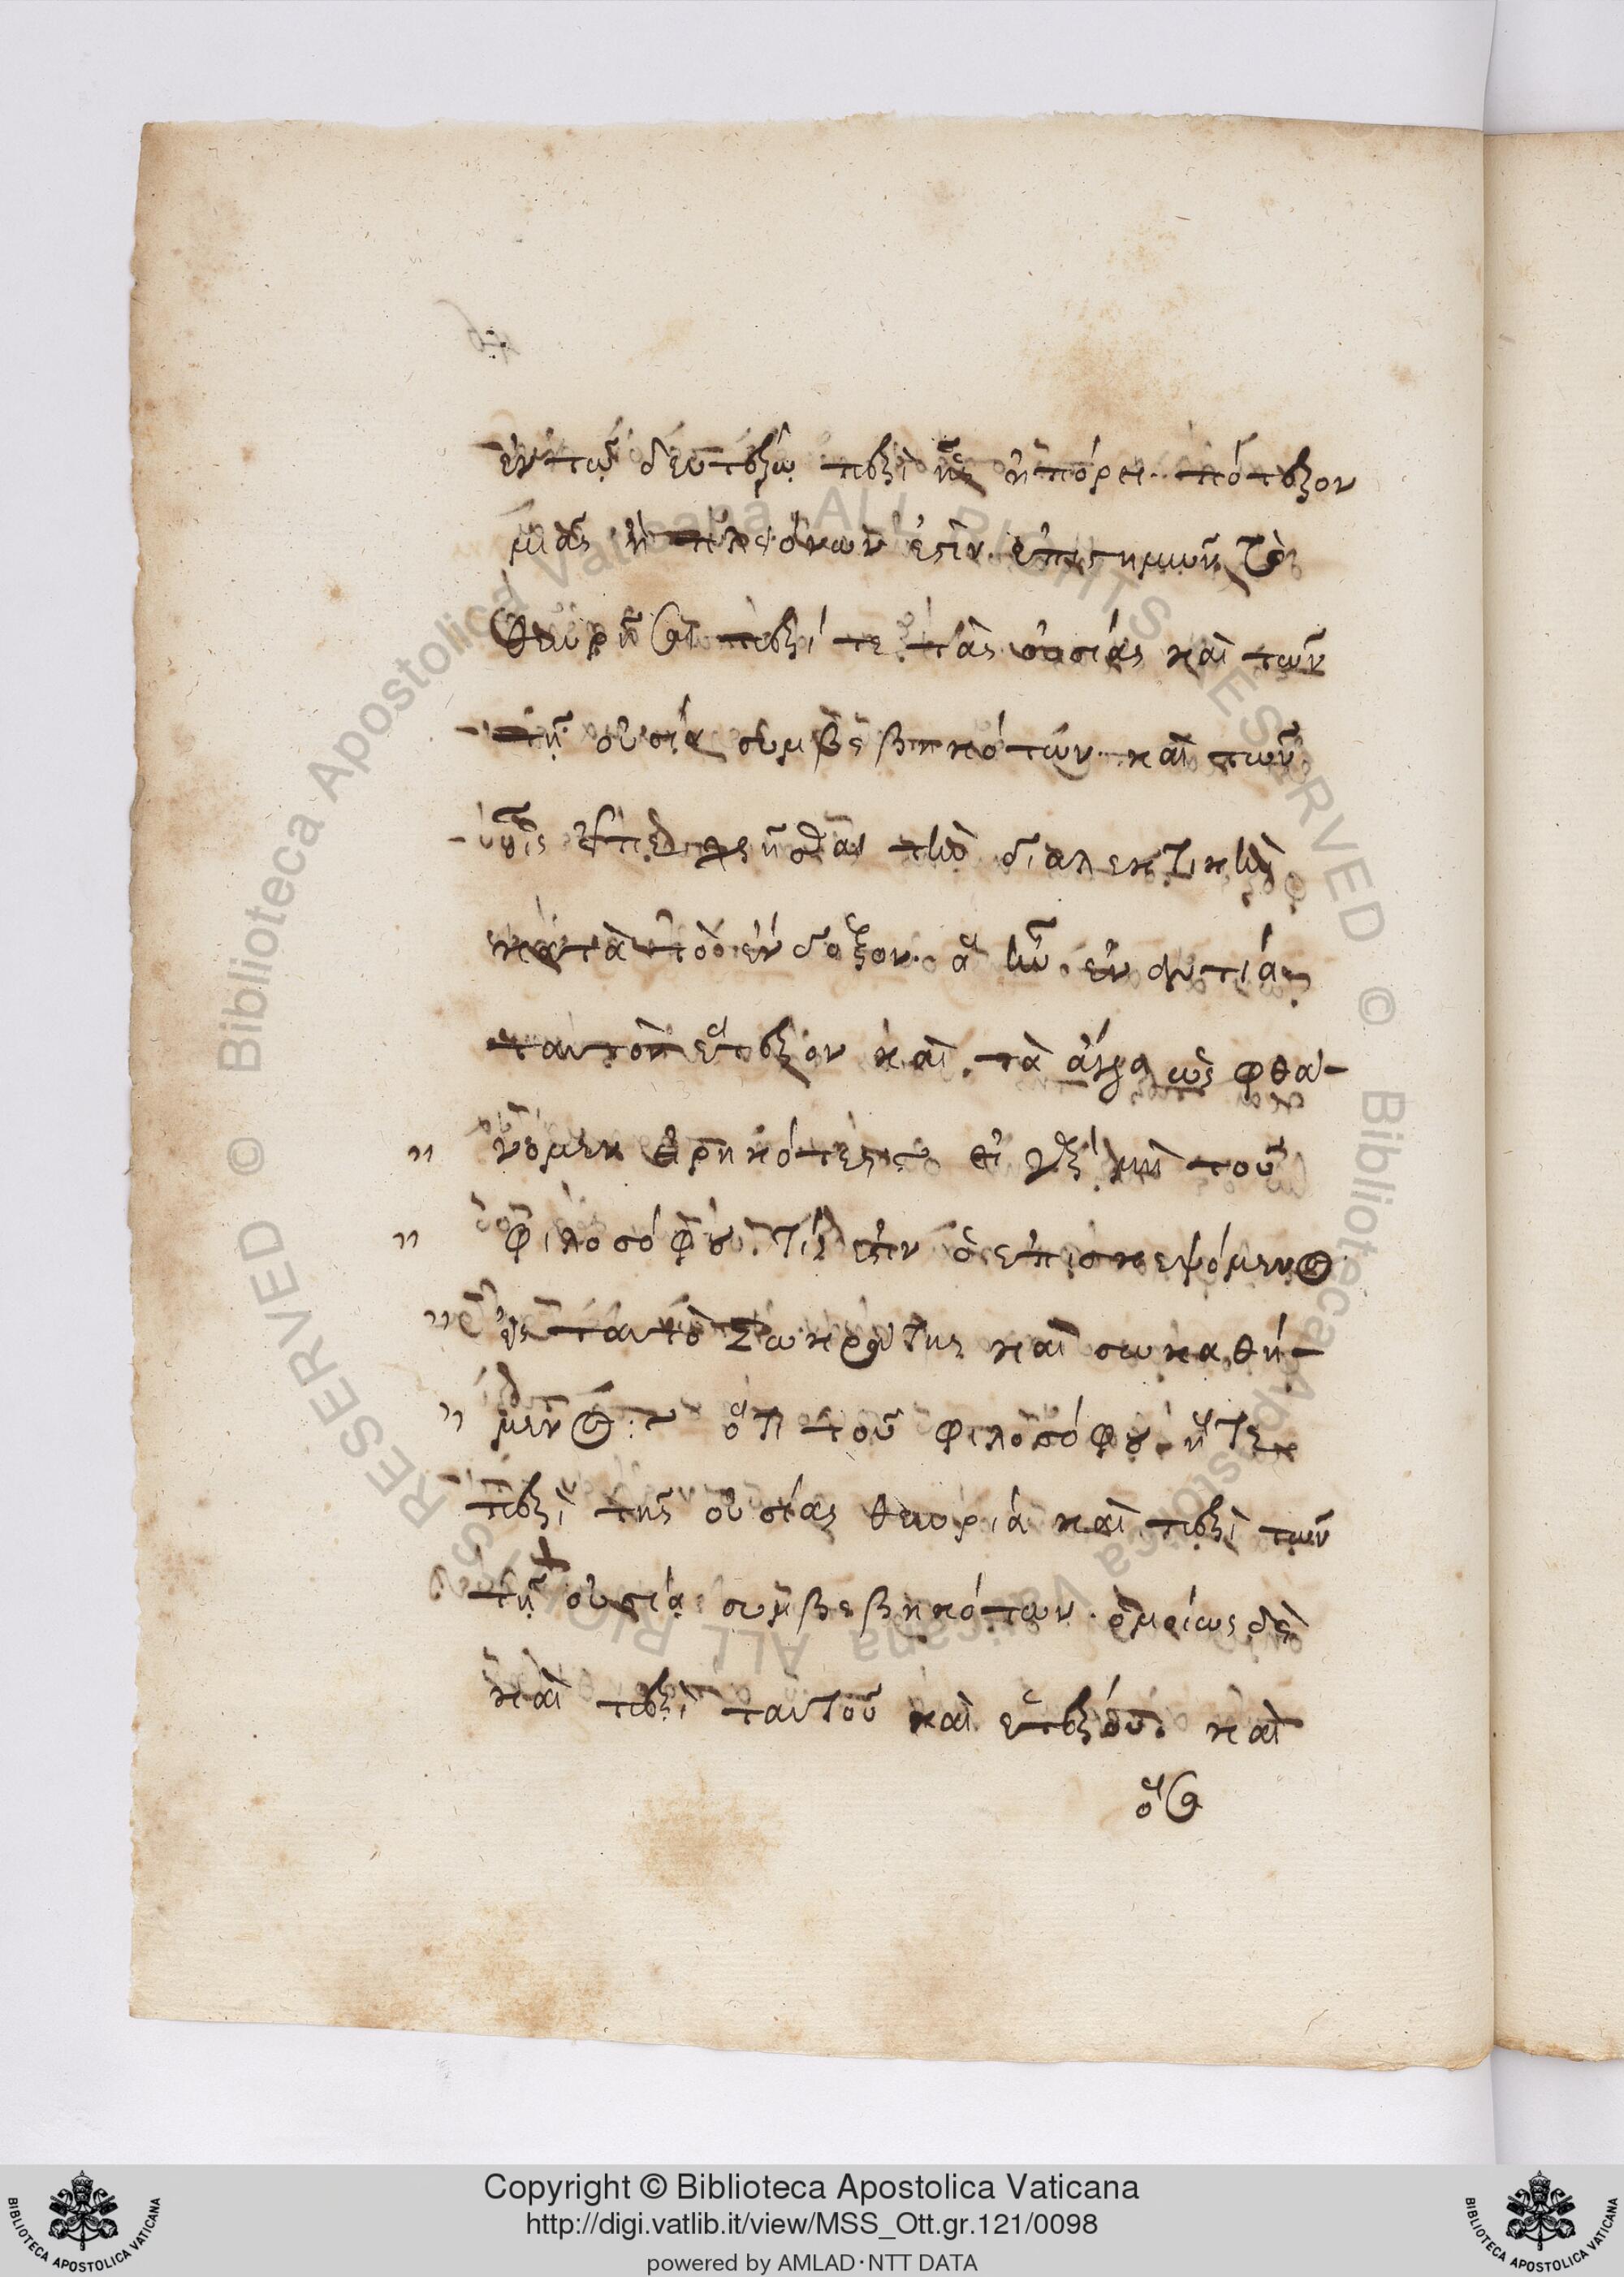 ἐν τῷ δευτέρῳ περὶ ἧς ἠπόρει· πότερον
μιᾶς ἢ πλειόνων ἐστὶν ἐπιστημῶν τὸ
θεωρῆσαι περί τε τὰς οὐσίας καὶ τῶν
τῇ οὐσίᾳ συμβεβηκότων· καὶ τῶν
τὴν διαλεκτικὴν
κατὰ τὸ ἔνδοξον· ἃ ἦν ἐναντία
ταυτὸν ἕτερον καὶ τὰ ἄλλα ὡς φθά-
" νομεν εἰρηκότες· εἰ γὰρ μὴ τοῦ
" φιλοσόφου τίς ἐστιν ὁ ἐπισκεψόμενος
" εἰ ταυτὸ Σωκράτης καὶ σω καθή-
" μενος: ~ ὅτι τοῦ φιλοσόφου ἥ τε
περὶ τῆς οὐσίας θεωρία καὶ περὶ τῶν
τῇ οὐσίᾳ συμβεβηκότων· ὁμοίως δὲ
καὶ περὶ ταυτοῦ καὶ ἑτέρου. καὶ
ὅσα
Copyright © Biblioteca Apostolica Vaticana
http://digi.vatlib.it/view/MSS_Ott.gr.121/0098
powered by AMLAD·NTT DATA
BIBLIOTECA APOSTOLICA VATICANA
BIBLIOTECA APOSTOLICA VATICANA
© Biblioteca Apostolica Vaticana ALL RIGHTS RESERVED
© Biblioteca Apostolica Vaticana ALL RIGHTS RESERVED